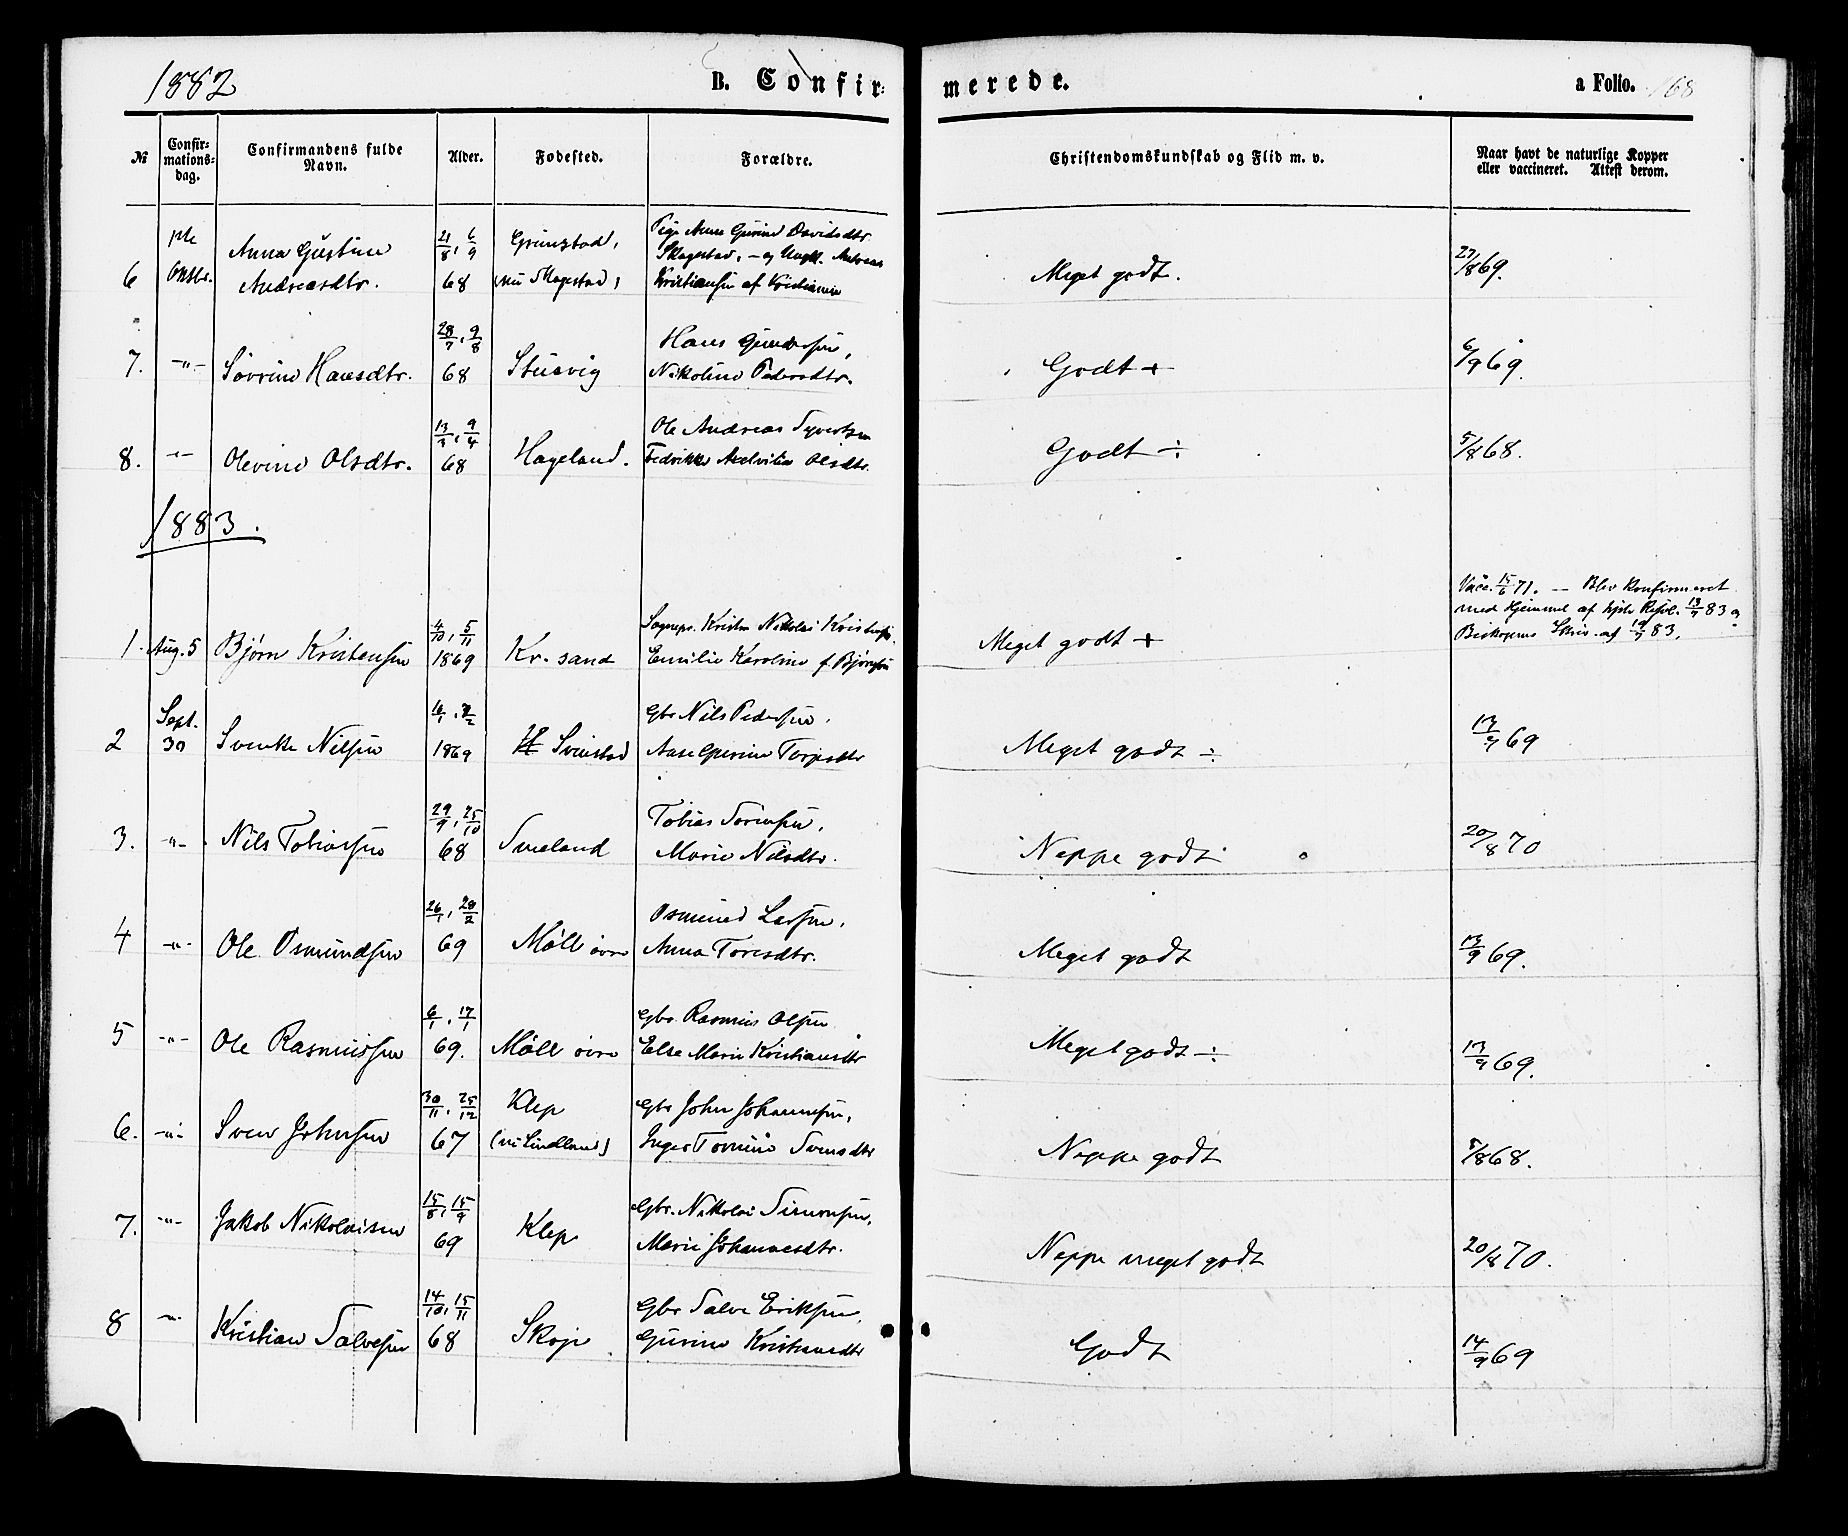 1882
B. Confir-
merede.
a Folio. 168
№
Confir-
mations-
dag.
Confirmandens fulde
Navn.
Alder.
Fødested.
Forældre.
Christendomskundskab og Flid m. v.
Naar havt de naturlige Kopper
eller vaccineret. Attest derom.
6
1ste
Oktbr.
Anna Gustine
Andreasdtr.
21/8, 6/9
68
Grimstad,
(nu Skagestad)
Pige Anne Gurine Davidsdtr.
Skagestad, - og Ungk. Andreas
Kristiansen af Kristiania
Meget godt.
27/8 69.
7. -"- Søvrine Hansdtr.
28/7, 9/8
68
Stusvig
Hans Gundersen,
Nikoline Pedersdtr.
Godt +
6/9 69.
8. -"- Olevine Olsdtr.
13/3, 9/4
68
Hageland.
Ole Andreas Syvertsen
Fredrikke Olsdtr.
Godt ÷
5/8 68.
1883.
1. Aug. 5 Bjørn Kristensen
4/10, 5/11
1869
Kr.sand
Sogнepr. Kristen Nikolai Kristensen,
Emilie Karoline f. Bjørnsen
Meget godt +
Vacc. 15/6 71. -- Blev konfirmeret
med Hjemmel af kgl. Resol. 13/7 83 og
Biskopens Skriv. af 19/7 83.
2
Sept.
30
Svenke Nilsen
1869
Svinstad
Gbr Nils Pedersen,
Aase Gurine Terjesdtr
Meget godt ÷
13/9 69
3. -"- Nils Tobiassen
29/9, 25/10
68
Smeland
Tobias Sørensen,
Marie Nilsdtr.
Neppe godt
20/8 70
4 -"- Ole Osmundsen
26/1, 28/2
69
Møll øvre
Osmund Larsen,
Anna Toresdtr.
Meget godt
13/9 69.
5 -"- Ole Rasmussen
6/1, 17/1
69.
Møll øvre
Gbr. Rasmus Olsen
Else Marie Kristiansdtr
Meget godt ÷
13/9 69.
6. -"- Sven Johnsen
30/11, 25/12
67
Klep
(nu Lindland)
Gbr John Johannesen,
Inger Tomine Svensdtr
Neppe godt
5/8 68.
7. -"- Jakob Nikolaisen
15/8, 15/9
69
Klep
Gbr. Nikolai Simonsen,
Marie Johannesdtr.
Neppe meget godt
20/8 70.
8 -"- Kristian Salvesen
14/10, 15/11
68
Skoje
Gbr Salve Eriksen,
Gurine Kristiansdtr
Godt
14/9 69